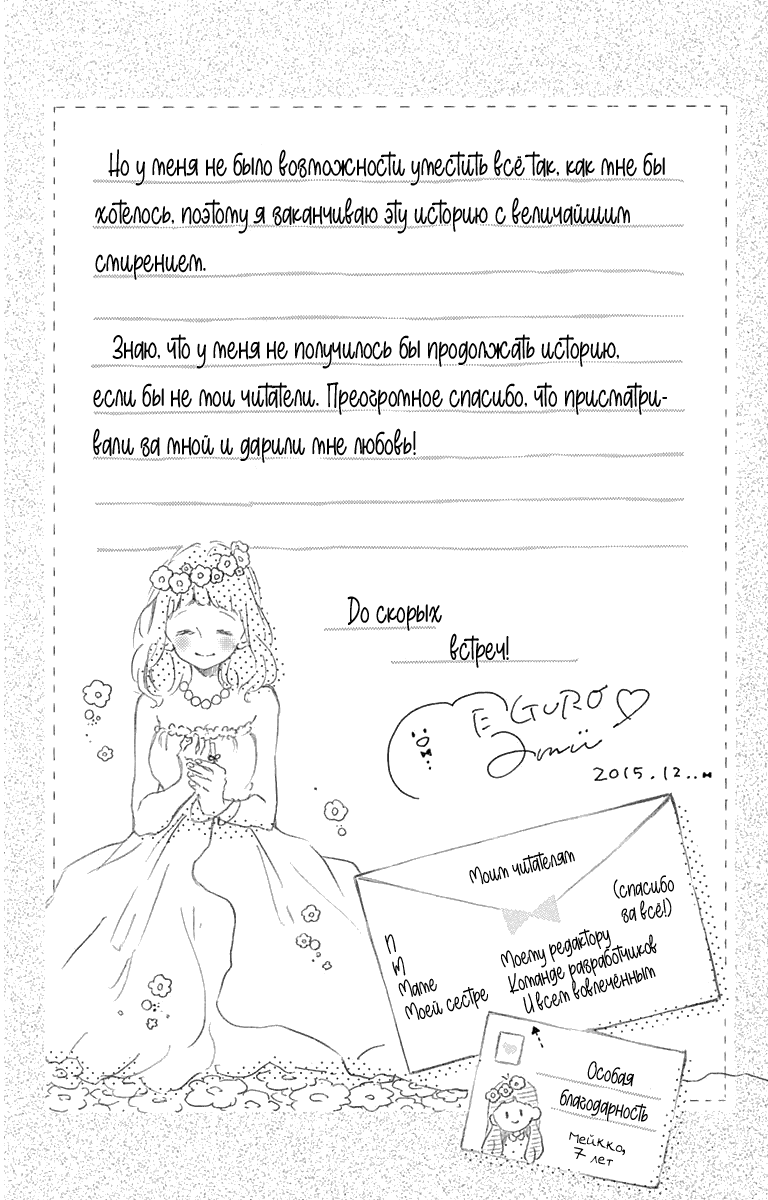 Но у меня не было возможности уместить всё так, как мне бы
хотелось, поэтому я заканчиваю эту историю с величайшим
смирением.
Знаю, что у меня не получилось бы продолжать историю,
если бы не мои читатели. Преогромное спасибо, что присматри-
вали за мной и дарили мне любовь!
До скорых
встреч!
EGURO
2015.12..
Моим читателям
(спасибо
за всё!)
N
M
Маме
Моей сестре
Моему редактору
Команде разработчиков
И всем вовлечённым
Особая
благодарность
Мейкко,
7 лет